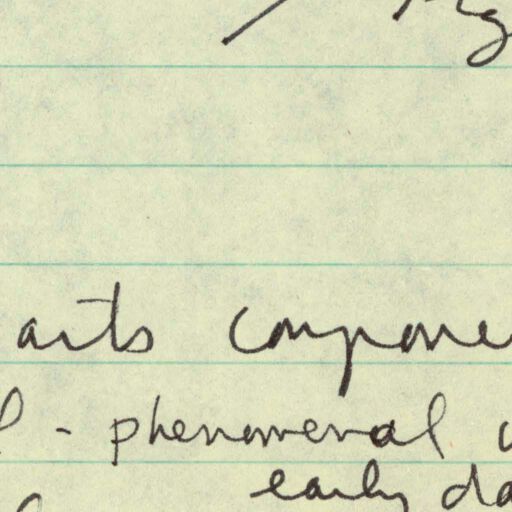 arts compone
- phenomenal
early da